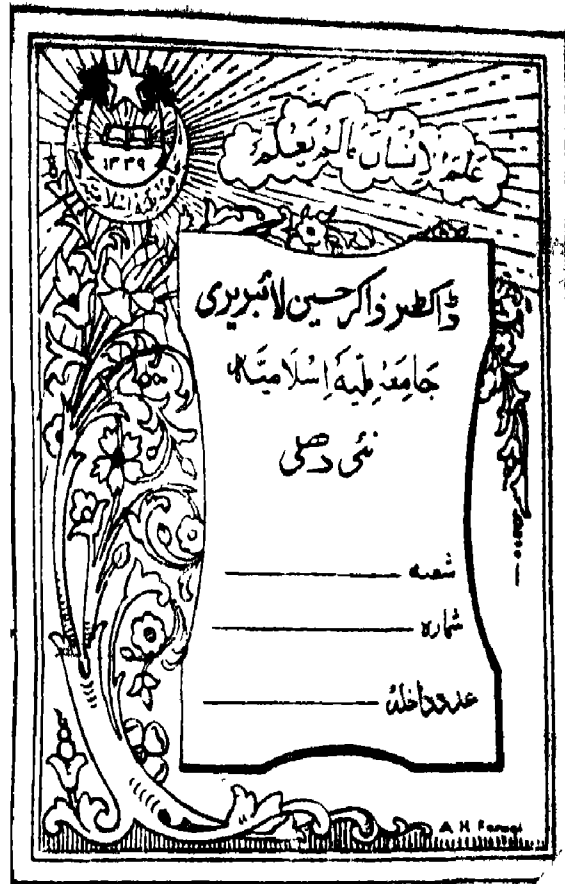 عَلَّمَ الْاِنْسَانَ مَا لَمْ يَعْلَمْ
۱۳۳۹
ڈاکٹر ذاکر حسین لائبریری
جَامِعَہ مِلّیَہ اِسْلَامِیَہ
نئی دھلی
شعبہ
شمارہ
عدد داخلہ
A H Faruqi